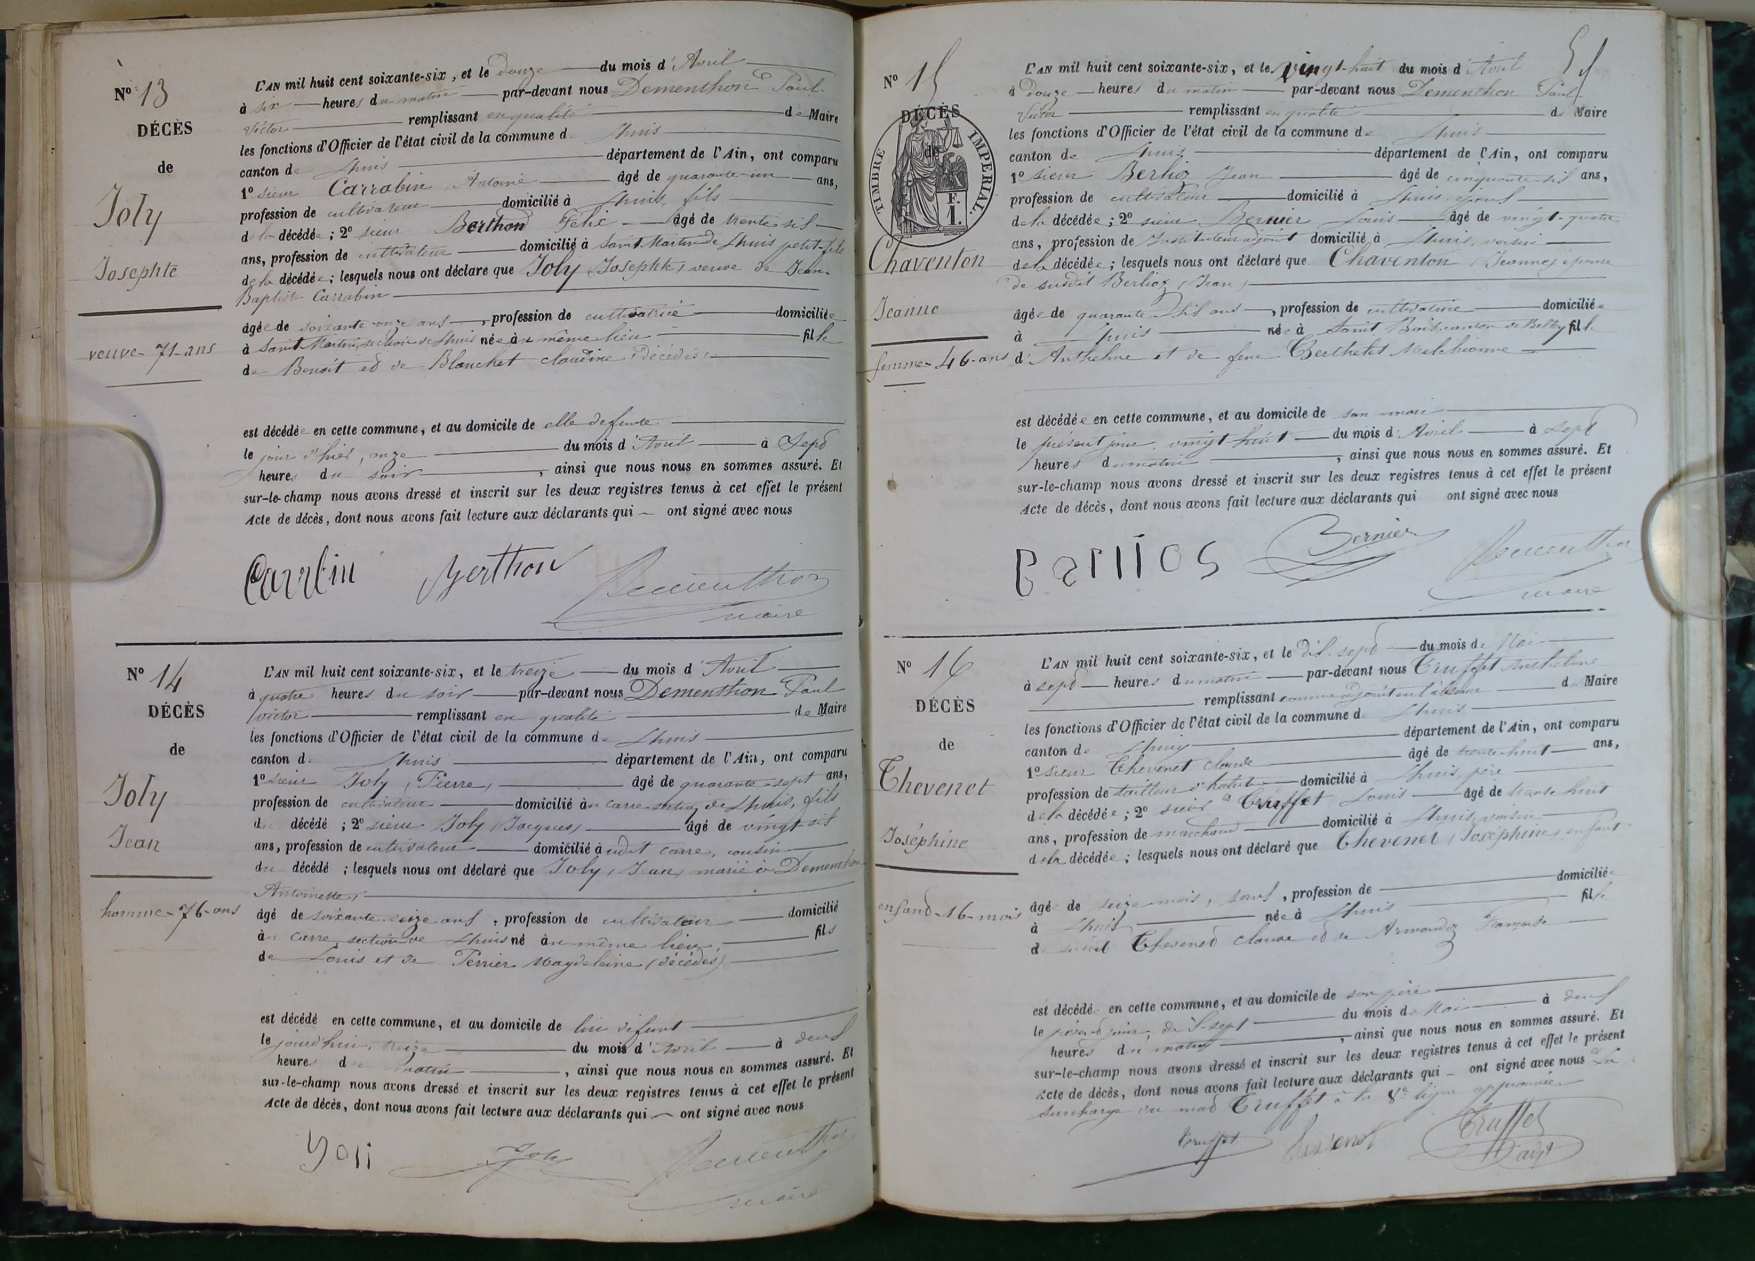 N° 13
DÉCÈS
de
Joly
Josephte
veuve - 71 - ans
L'AN mil huit cent soixante-six, et le douze du mois d'Avril
à six heures du matin par-devant nous Dementhon Paul
Victor remplissant en qualité de Maire
les fonctions d'Officier de l'état civil de la commune de Lhuis
canton de Lhuis département de l'Ain, ont comparu
1° sieur Carrabin Antoine âgé de quarante-un ans,
profession de cultivateur domicilié à Lhuis, fils
de la décédée; 2° sieur Berthon Félic âgé de trente six
ans, profession de cultivateur domicilié à Saint Martin de Lhuis petit-fils
de la décédée; lesquels nous ont déclaré que Joly (Josephte) veuve de Jean-
Baptiste Carrabin
âgée de soixante onze ans, profession de cultivatrice domiciliée
à Saint Martin, section de Lhuis née au même lieu fille
de Benoit et de Blanchet claudine (décédés)
est décédée en cette commune, et au domicile de elle defunte
le jour d'hier, onze du mois d'Avril à Sept
heures du soir, ainsi que nous nous en sommes assuré. Et
sur-le-champ nous avons dressé et inscrit sur les deux registres tenus à cet effet le présent
Acte de décès, dont nous avons fait lecture aux déclarants qui ont signé avec nous
Carrabin Berthon Dementhon
maire
N° 14
DÉCÈS
de
Joly
Jean
homme - 76 - ans
L'AN mil huit cent soixante-six, et le treize du mois d'Avril
à quatre heures du soir par-devant nous Dementhon Paul
Victor remplissant en qualité de Maire
les fonctions d'Officier de l'état civil de la commune de Lhuis
canton de Lhuis département de l'Ain, ont comparu
1° sieur Joly (Pierre) âgé de quarante-sept ans,
profession de cultivateur domicilié à carre section de Lhuis, fils
du décédé; 2° sieur Joly (Jacques) âgé de vingt six
ans, profession de cultivateur domicilié à udit carre, cousin
du décédé; lesquels nous ont déclaré que Joly (Jean) marié à Dementhon
Antoinette
âgé de soixante seize ans, profession de cultivateur domicilié
à carre section de Lhuis né au même lieu, fils
de Louis et de Perrier Magdeleine (décédés)
est décédé en cette commune, et au domicile de lui défunt
le jourdhui, treize du mois d'Avril à deux
heures du matin, ainsi que nous nous en sommes assuré. Et
sur-le-champ nous avons dressé et inscrit sur les deux registres tenus à cet effet le présent
Acte de décès, dont nous avons fait lecture aux déclarants qui ont signé avec nous
Joli Joly Dementhon
maire
N° 15
DÉCÈS
de
TIMBRE IMPÉRIAL.
1. F.
Chaventon
Jeanne
femme - 46 - ans
L'AN mil huit cent soixante-six, et le vingt-huit du mois d'Avril
à Douze heures du matin par-devant nous Dementhon Paul
Victor remplissant en qualité de Maire
les fonctions d'Officier de l'état civil de la commune de Lhuis
canton de Lhuis département de l'Ain, ont comparu
1° sieur Berlioz Jean âgé de cinquante-six ans,
profession de cultivateur domicilié à Lhuis, époux
de la décédée; 2° sieur Bernier Louis âgé de vingt-quatre
ans, profession de Instituteur adjoint domicilié à Lhuis, voisin
de la décédée; lesquels nous ont déclaré que Chaventon (Jeanne) épouse
de susdit Berlioz (Jean)
âgée de quarante six ans, profession de cultivatrice domiciliée
à Lhuis née à Saint de Belley fille
d'Anthelme et de feue Berthelet Melchionne
est décédée en cette commune, et au domicile de son mari
le présent jour, vingt huit du mois d'Avril à Sept
heures du matin, ainsi que nous nous en sommes assuré. Et
sur-le-champ nous avons dressé et inscrit sur les deux registres tenus à cet effet le présent
Acte de décès, dont nous avons fait lecture aux déclarants qui ont signé avec nous
Berlios Bernier Dementhon
maire
N° 16
DÉCÈS
de
Thevenet
Joséphine
enfant - 16 - mois
L'AN mil huit cent soixante-six, et le dix sept du mois de Mai
à sept heures du matin par-devant nous Truffet Anthelme
remplissant comme adjoint en l'absence de Maire
les fonctions d'Officier de l'état civil de la commune de Lhuis
canton de Lhuis département de l'Ain, ont comparu
1° sieur Thevenet claude âgé de trente-huit ans,
profession de tailleur d'habits domicilié à Lhuis, père
de la décédée; 2° sieur Truffet Louis âgé de trente huit
ans, profession de marchand domicilié à Lhuis, voisin
de la décédée; lesquels nous ont déclaré que Thevenet (Joséphine) enfant
âgée de seize mois, sans, profession de domiciliée
à Lhuis née à Lhuis fille
de susdit Thevenet claude et de Armandoz Françoise
est décédée en cette commune, et au domicile de son père
le présent jour, dix sept du mois de Mai à deux
heures du matin, ainsi que nous nous en sommes assuré. Et
sur-le-champ nous avons dressé et inscrit sur les deux registres tenus à cet effet le présent
Acte de décès, dont nous avons fait lecture aux déclarants qui ont signé avec nous La
surcharge du mot Truffet à la 8e ligne approuvée
Truffet Thevenet Truffet
adjt